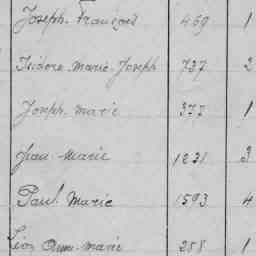 Joseph François 469 1
Isidore Marie Joseph 737 2
Joseph Marie 377 1
Jean Marie 1231 3
Paul Marie 1593 4
Léon Marie 288 1